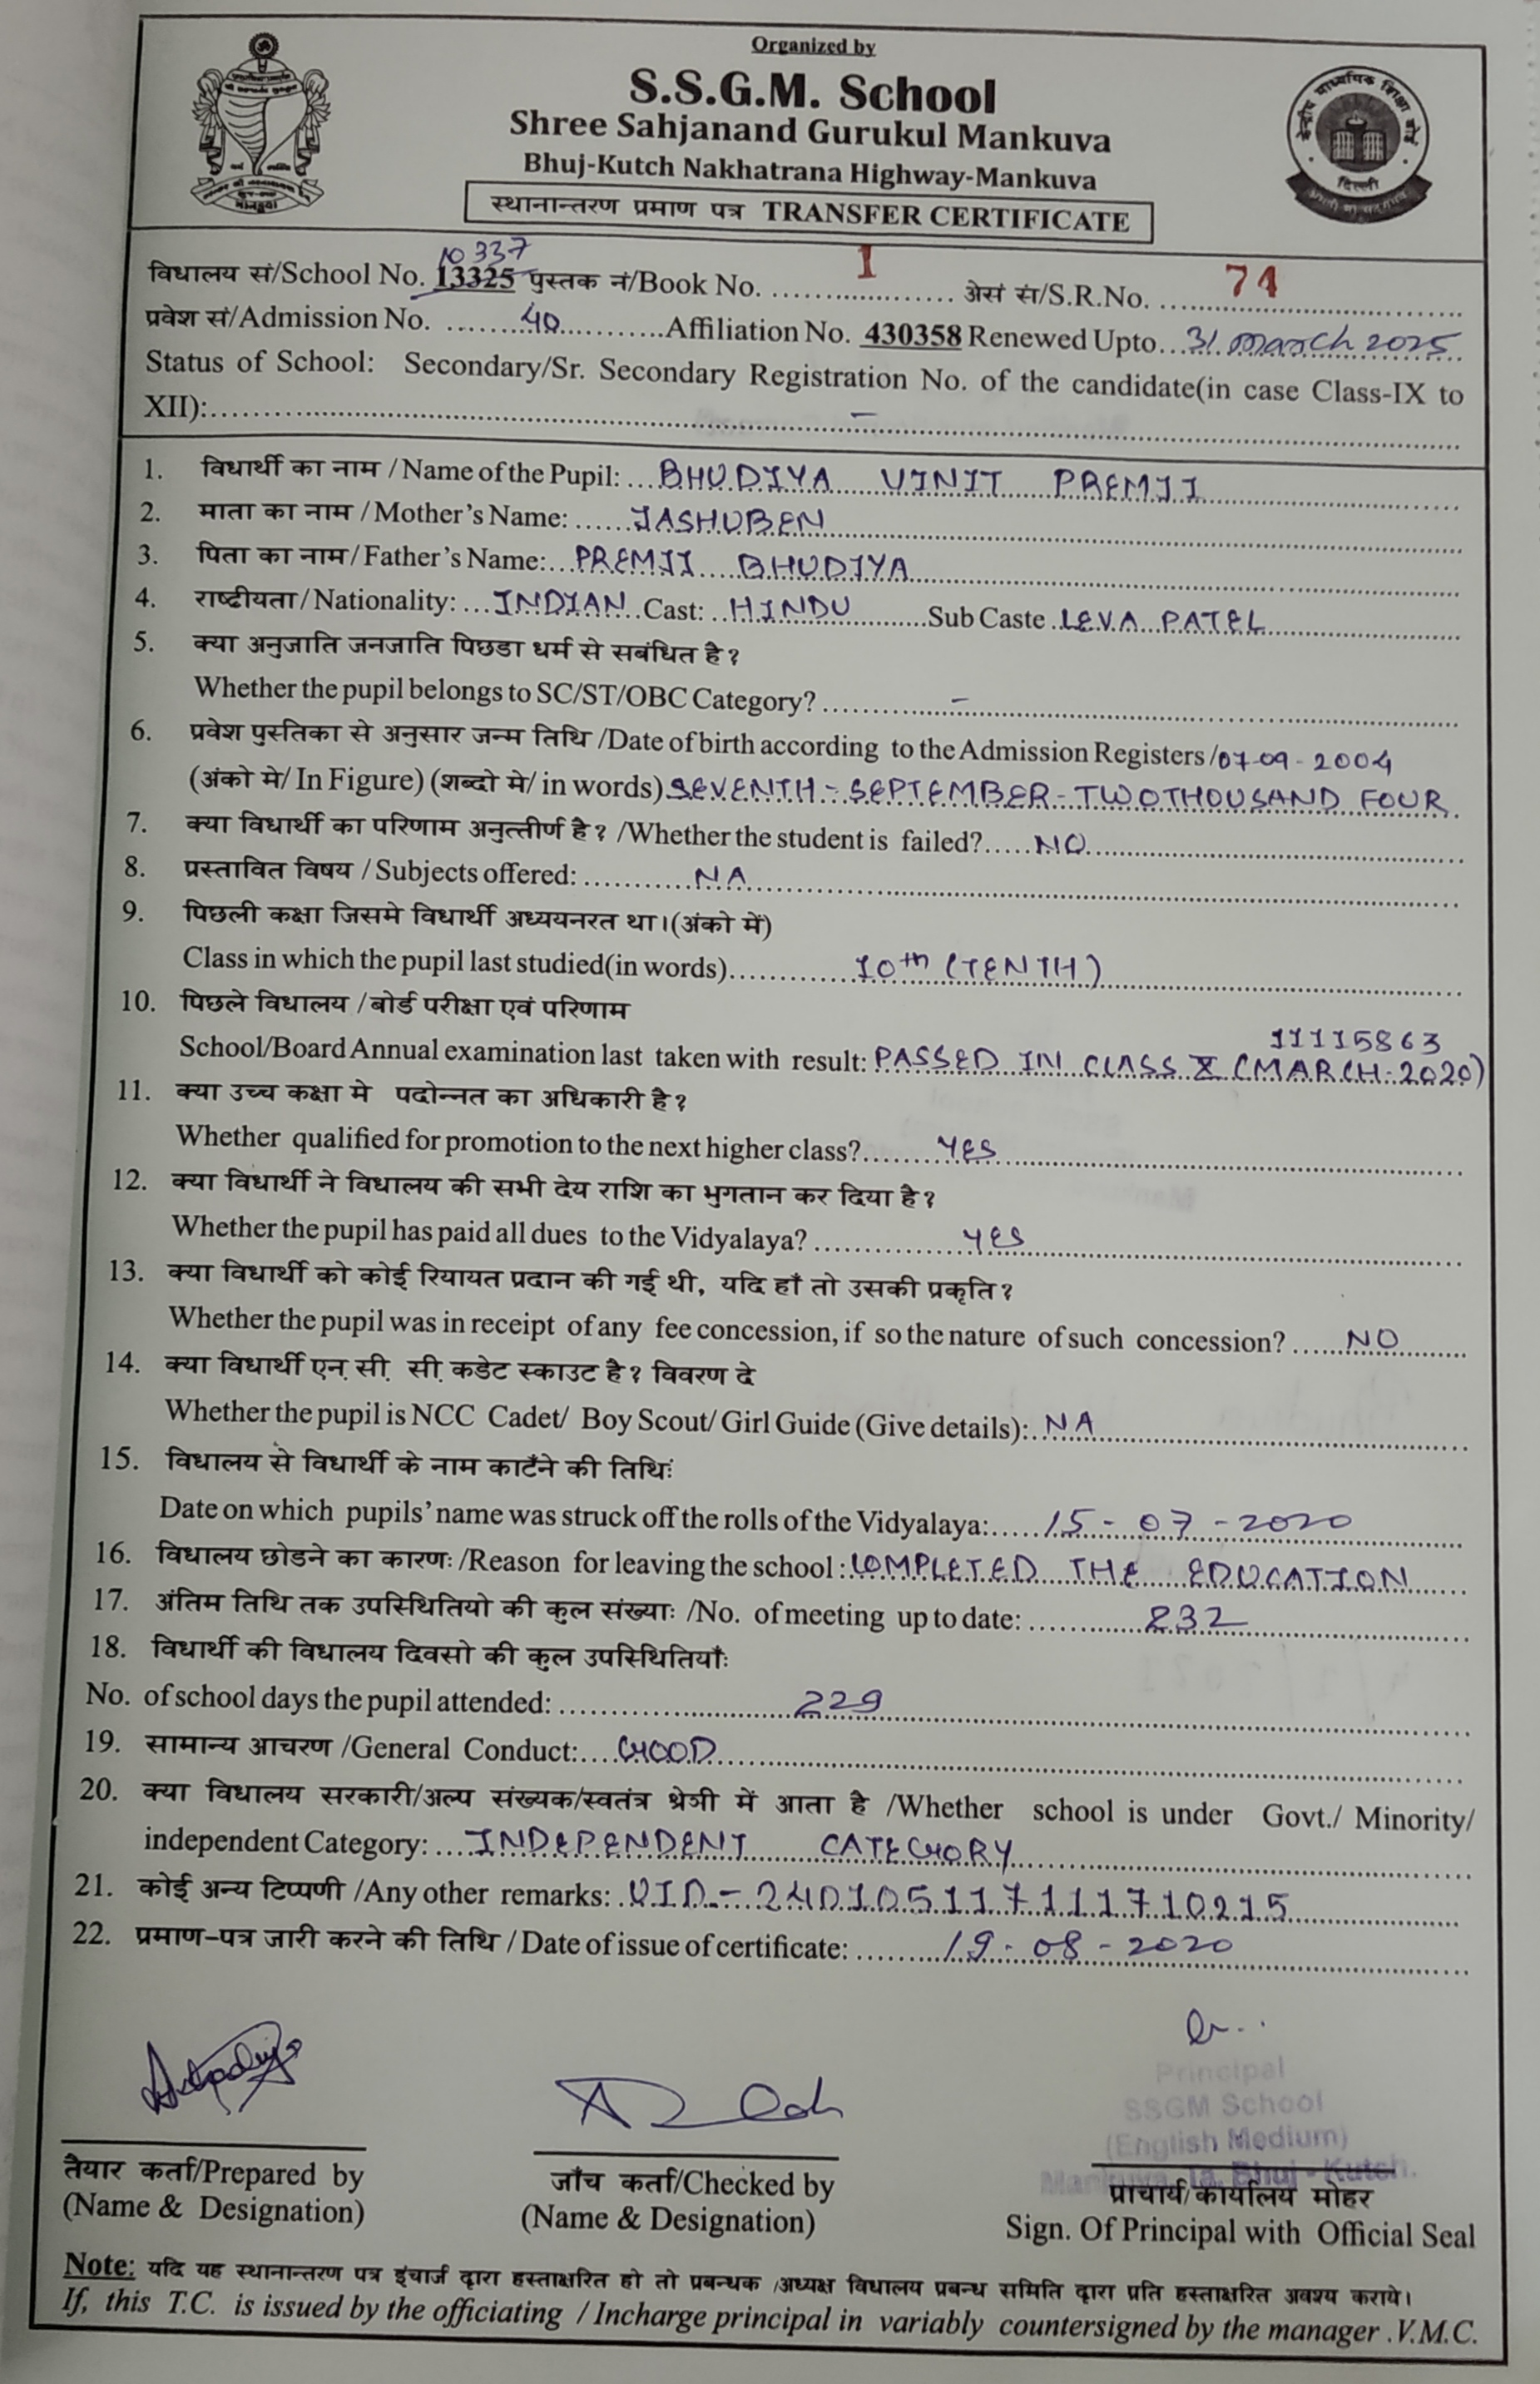 Organized by
S.S.G.M. School
Shree Sahjanand Gurukul Mankuva
Bhuj-Kutch Nakhatrana Highway-Mankuva
स्थानान्तरण प्रमाण पत्र TRANSFER CERTIFICATE
केन्द्रीय माध्यमिक शिक्षा बोर्ड
दिल्ली
10337
विधालय सं/School No. 13325 पुस्तक नं/Book No. .................... 1 अेसं सं/S.R.No. ........ 71
प्रवेश सं/Admission No. ........40...........Affiliation No. 430358 Renewed Upto...31 March 2025
Status of School: Secondary/Sr. Secondary Registration No. of the candidate(in case Class-IX to
XII):........ –
1. विधार्थी का नाम / Name of the Pupil: ...BHUDIYA VINIT PREMJI
2. माता का नाम / Mother's Name: ......JASHUBEN
3. पिता का नाम/ Father's Name:...PREMJI BHUDIYA
4. राष्टीयता/ Nationality: ...INDIAN Cast: ..HINDU ........Sub Caste ..LEVA PATEL
5. क्या अनुजाति जनजाति पिछडा धर्म से सबंधित है?
Whether the pupil belongs to SC/ST/OBC Category? ............ –
6. प्रवेश पुस्तिका से अनुसार जन्म तिथि /Date of birth according to the Admission Registers /07-09-2004
(अंको मे/ In Figure) (शब्दो मे/ in words) SEVENTH - SEPTEMBER - TWO THOUSAND FOUR
7. क्या विधार्थी का परिणाम अनुत्तीर्ण है? /Whether the student is failed?.....NO
8. प्रस्तावित विषय / Subjects offered: ...........NA
9. पिछली कक्षा जिसमे विधार्थी अध्ययनरत था।(अंको में)
Class in which the pupil last studied(in words)............10th (TENTH)
10. पिछले विधालय /बोर्ड परीक्षा एवं परिणाम
11115863
School/Board Annual examination last taken with result: PASSED IN CLASS X (MARCH-2020)
11. क्या उच्च कक्षा मे पदोन्नत का अधिकारी है?
Whether qualified for promotion to the next higher class?........YES
12. क्या विधार्थी ने विधालय की सभी देय राशि का भुगतान कर दिया है?
Whether the pupil has paid all dues to the Vidyalaya? ................YES
13. क्या विधार्थी को कोई रियायत प्रदान की गई थी, यदि हाँ तो उसकी प्रकृति?
Whether the pupil was in receipt of any fee concession, if so the nature of such concession? ......NO
14. क्या विधार्थी एन. सी. सी. कडेट स्काउट है? विवरण दे
Whether the pupil is NCC Cadet/ Boy Scout/ Girl Guide (Give details):..NA
15. विधालय से विधार्थी के नाम काटँने की तिथिः
Date on which pupils' name was struck off the rolls of the Vidyalaya:.....15-07-2020
16. विधालय छोडने का कारणः /Reason for leaving the school : COMPLETED THE EDUCATION
17. अंतिम तिथि तक उपस्थितियो की कुल संख्याः /No. of meeting up to date: ............232
18. विधार्थी की विधालय दिवसो की कुल उपस्थितियाँः
No. of school days the pupil attended: ........................229
19. सामान्य आचरण /General Conduct:....GOOD
20. क्या विधालय सरकारी/अल्प संख्यक/स्वतंत्र श्रेञी में आता है /Whether school is under Govt./ Minority/
independent Category: ....INDEPENDENT CATEGORY
21. कोई अन्य टिप्पणी /Any other remarks: .UID - 240105117111710215
22. प्रमाण-पत्र जारी करने की तिथि / Date of issue of certificate: .........19-08-2020
Principal
SSGM School
(English Medium)
Mankuva, Ta. Bhuj - Kutch.
तैयार कर्ता/Prepared by
(Name & Designation)
जाँच कर्ता/Checked by
(Name & Designation)
प्राचार्य/कार्यालय मोहर
Sign. Of Principal with Official Seal
Note: यदि यह स्थानान्तरण पत्र इंचार्ज द्वारा हस्ताक्षरित हो तो प्रबन्धक /अध्यक्ष विधालय प्रबन्ध समिति द्वारा प्रति हस्ताक्षरित अवश्य कराये।
If, this T.C. is issued by the officiating / Incharge principal in variably countersigned by the manager .V.M.C.